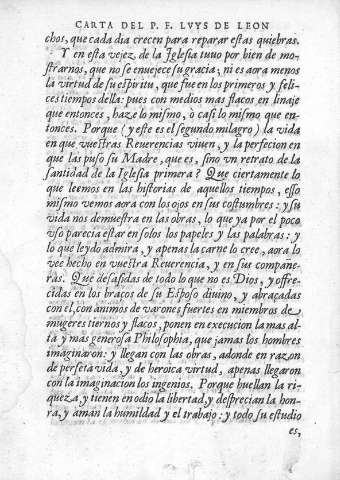 CARTA DEL P. F. LUYS DE LEON
chos, que cada dia crecen para reparar estas quiebras.
Y en esta vejez de la Iglesia tuuo por bien de mo-
strarnos, que no se enuejece su gracia, ni es aora menos
la virtud de su espiritu, que fue en los primeros y feli-
ces tiempos della: pues con medios mas flacos en linaje
que entonces, haze lo mismo, ò casi lo mismo que en-
tonces. Porque (y este es el segundo milagro) la vida
en que vuestras Reuerencias viuen, y la perfecion en
que las puso su Madre, que es, sino vn retrato de la
santidad de la Iglesia primera? Que ciertamente lo
que leemos en las historias de aquellos tiempos, esso
mismo vemos aora con los ojos en sus costumbres: y su
vida nos demuestra en las obras, lo que ya por el poco
vso parecia estar en solos los papeles y las palabras: y
lo que leydo admira, y apenas la carne lo cree, aora lo
vee hecho en vuestra Reuerencia, y en sus compañe-
ras. Que desasidas de todo lo que no es Dios, y offre-
cidas en los braços de su Esposo diuino, y abraçadas
con el, con animos de varones fuertes en miembros de
mugeres tiernos y flacos, ponen en execucion la mas al-
ta y mas generosa Philosophia, que jamas los hombres
imaginaron: y llegan con las obras, adonde en razon
de perfeta vida, y de heroica virtud, apenas llegaron
con la imaginacion los ingenios. Porque huellan la ri-
queza, y tienen en odio la libertad, y desprecian la hon-
ra, y aman la humildad y el trabajo: y todo su estudio
es,